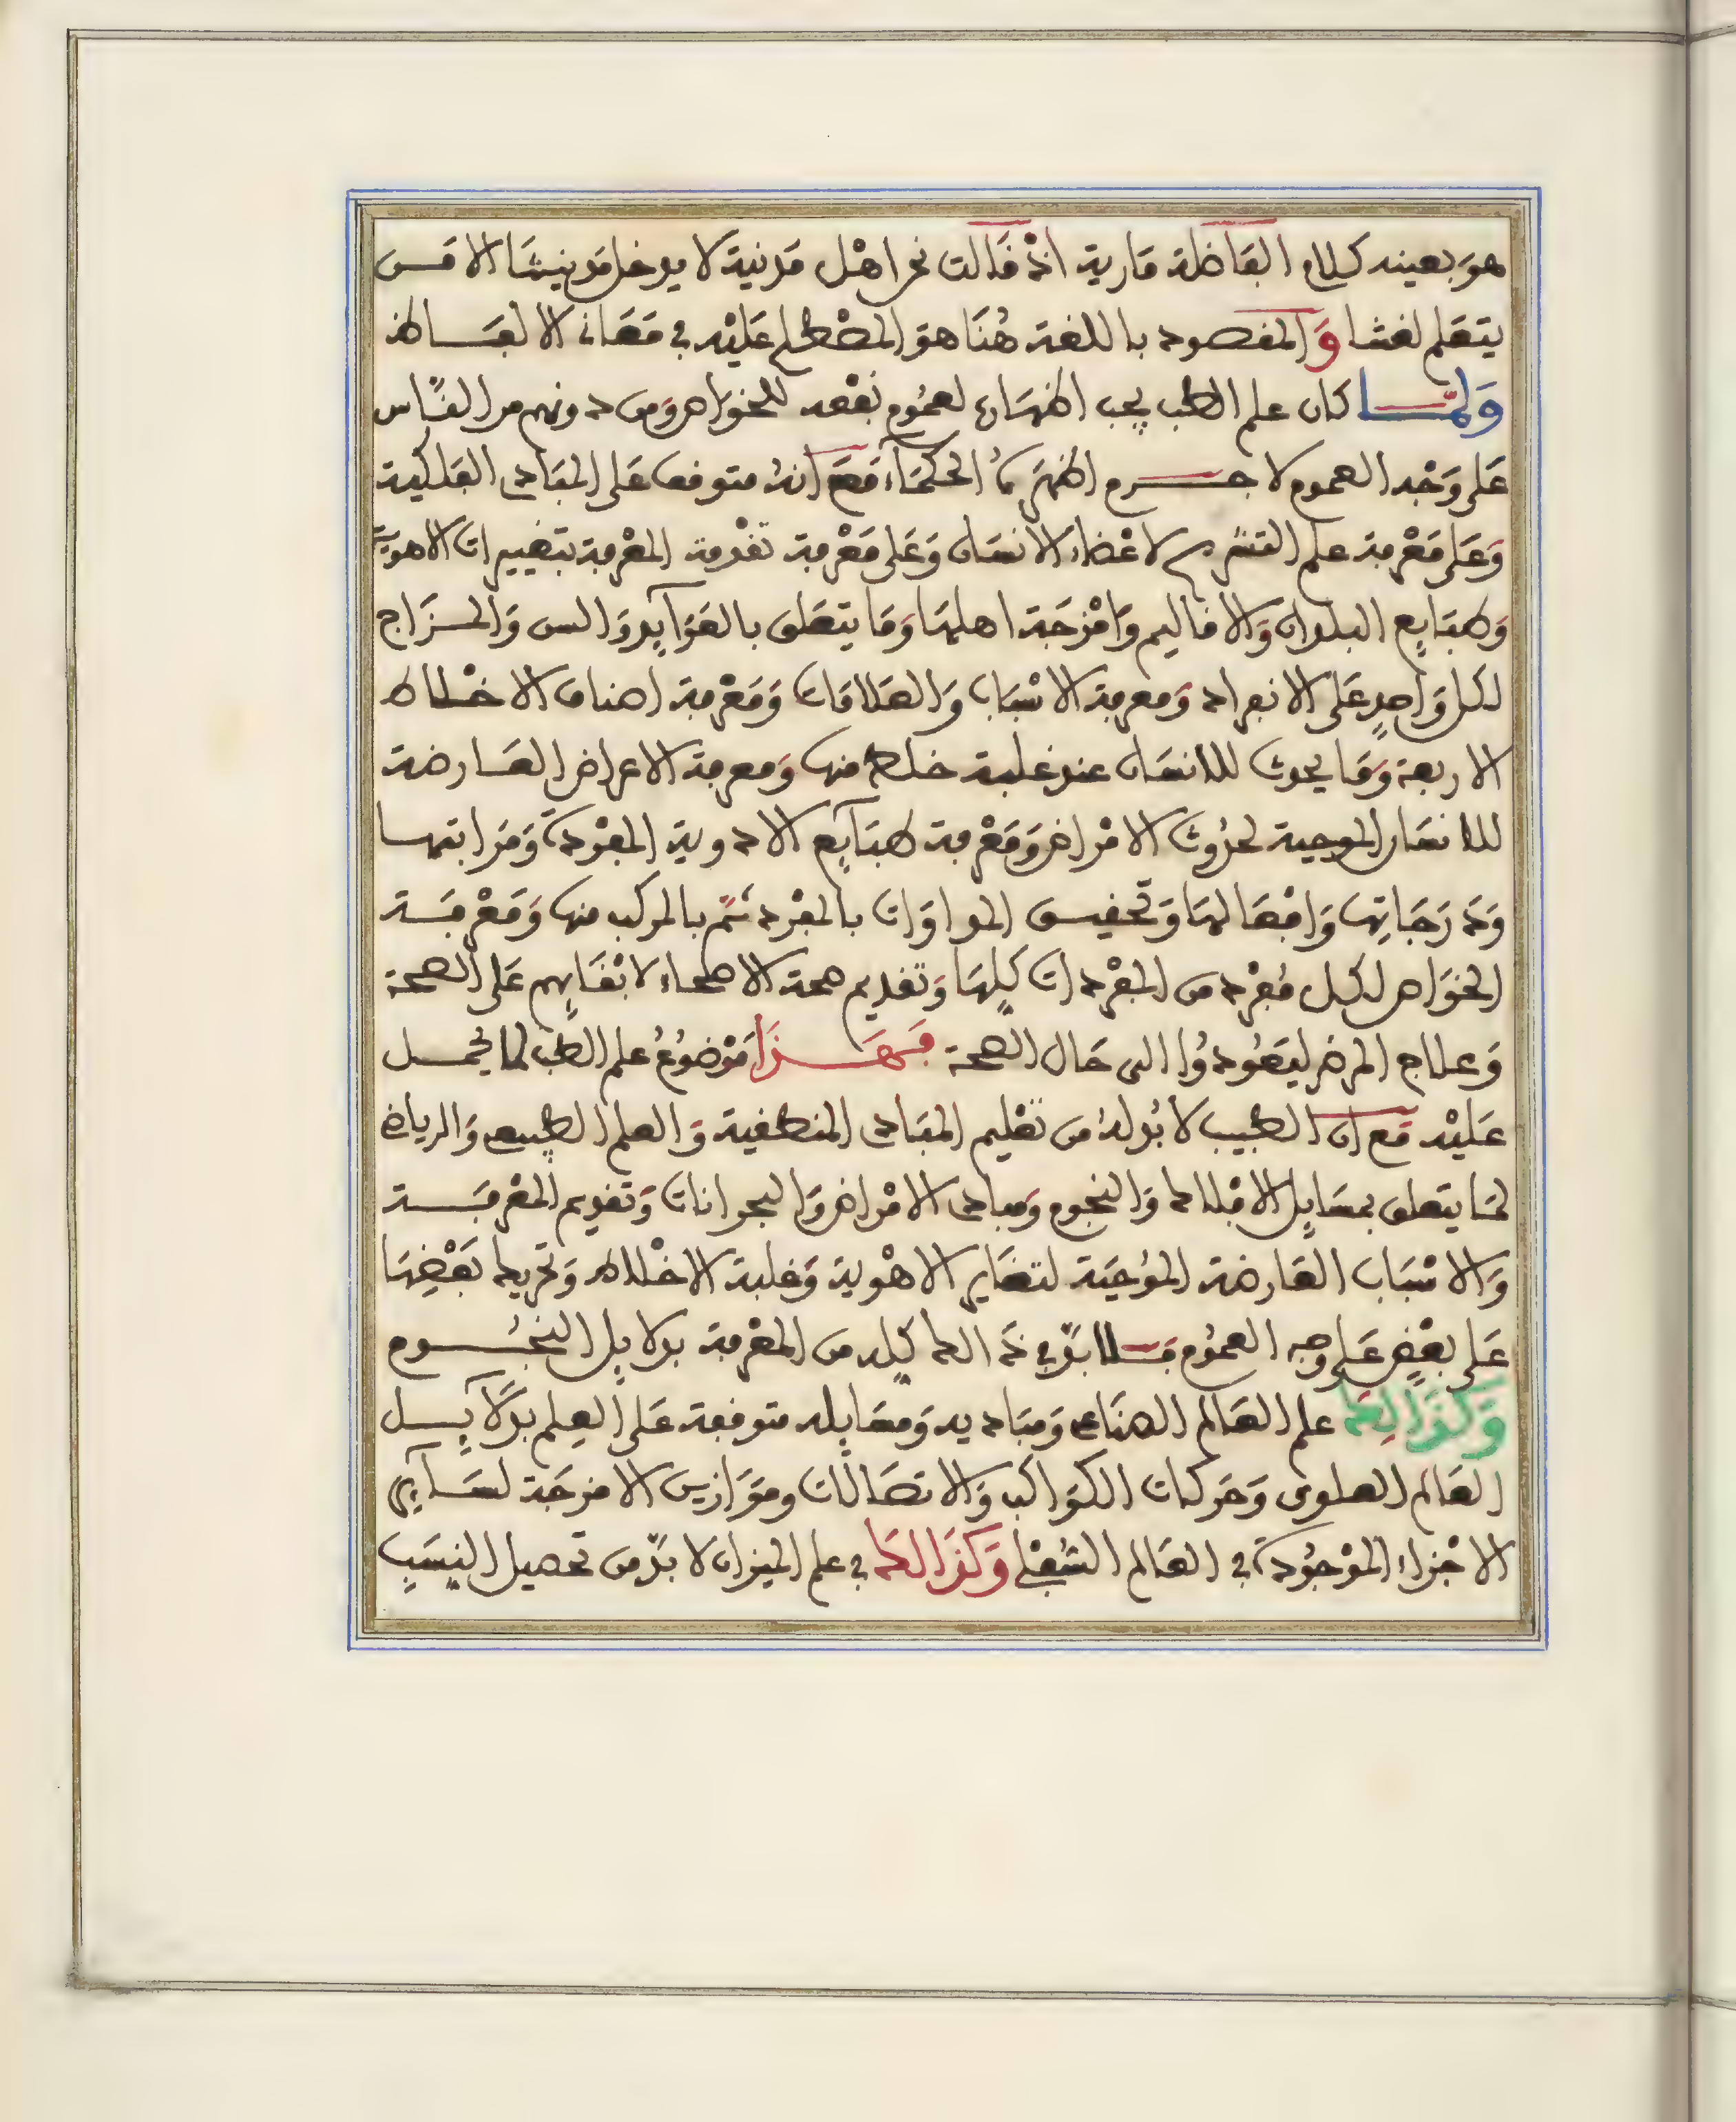 هو بعينه كلام الفاضلة مارية اذ قالت نحن اهل مدنية لا يدخل مدينتنا الا من
يتعلم لغتنا والمقصود باللغة هنا هو المصطلح عليه في معاني الالفاظ
ولما كان علم الطب يجب اظهاره لعموم نفعه للخواص ومن دونهم من الناس
على وجه العموم لا جرم اظهره الحكماء مع انه متوقف على المبادي الفلكية
وعلى معرفة علم التشريح لاعضاء الانسان وعلى معرفة تقدمة المعرفة بتغييرات الاهوية
وطبايع البلدان والاقاليم وامزجة اهلها وما يتعلق بالعوايد والسن والمزاج
لكل واحد على الانفراد ومعرفة الاسباب والعلامات ومعرفة اصناف الاخلاط
الاربعة وما يحدث للانسان عند غلبة خلط منها ومعرفة الاعراض العارضة
للانسان الموجبة لحدوث الامراض ومعرفة طبايع الادوية المفردة ومراتبها
ودرجاتها وافعالها وتحقيق المداوات بالمفرد ثم بالمركب منها ومعرفة
الخواص لكل مفرد من المفردات كلها وتقديم صحة الاصحاء لابقايهم على الصحة
وعلاج المرضى ليعودوا الى حال الصحة فهذا موضوع علم الطب لما يحمل
عليه مع ان الطبيب لا بد له من تعليم المبادي المنطقية والعلم الطبيعي والرياضي
لما يتعلق بمسايل الافلاك والنجوم ومبادي الامراض والبحرانات وتقديم المعرفة
والاسباب العارضة الموجبة لتغاير الاهوية وغلبة الاخلاط وتحريك بعضها
على بعض على وجه العموم فلا بد في ذالك كله من المعرفة بدلايل النجوم
وكذالك علم العالم الصناعي ومباديه ومسايله متوقفة على العلم بدلايل
العالم العلوي وحركات الكواكب والاتصالات وموازين الامزجة لساير
الاجزاء الموجودة في العالم السفلي وكذالك في علم الميزان لا بد من تحصيل النسب